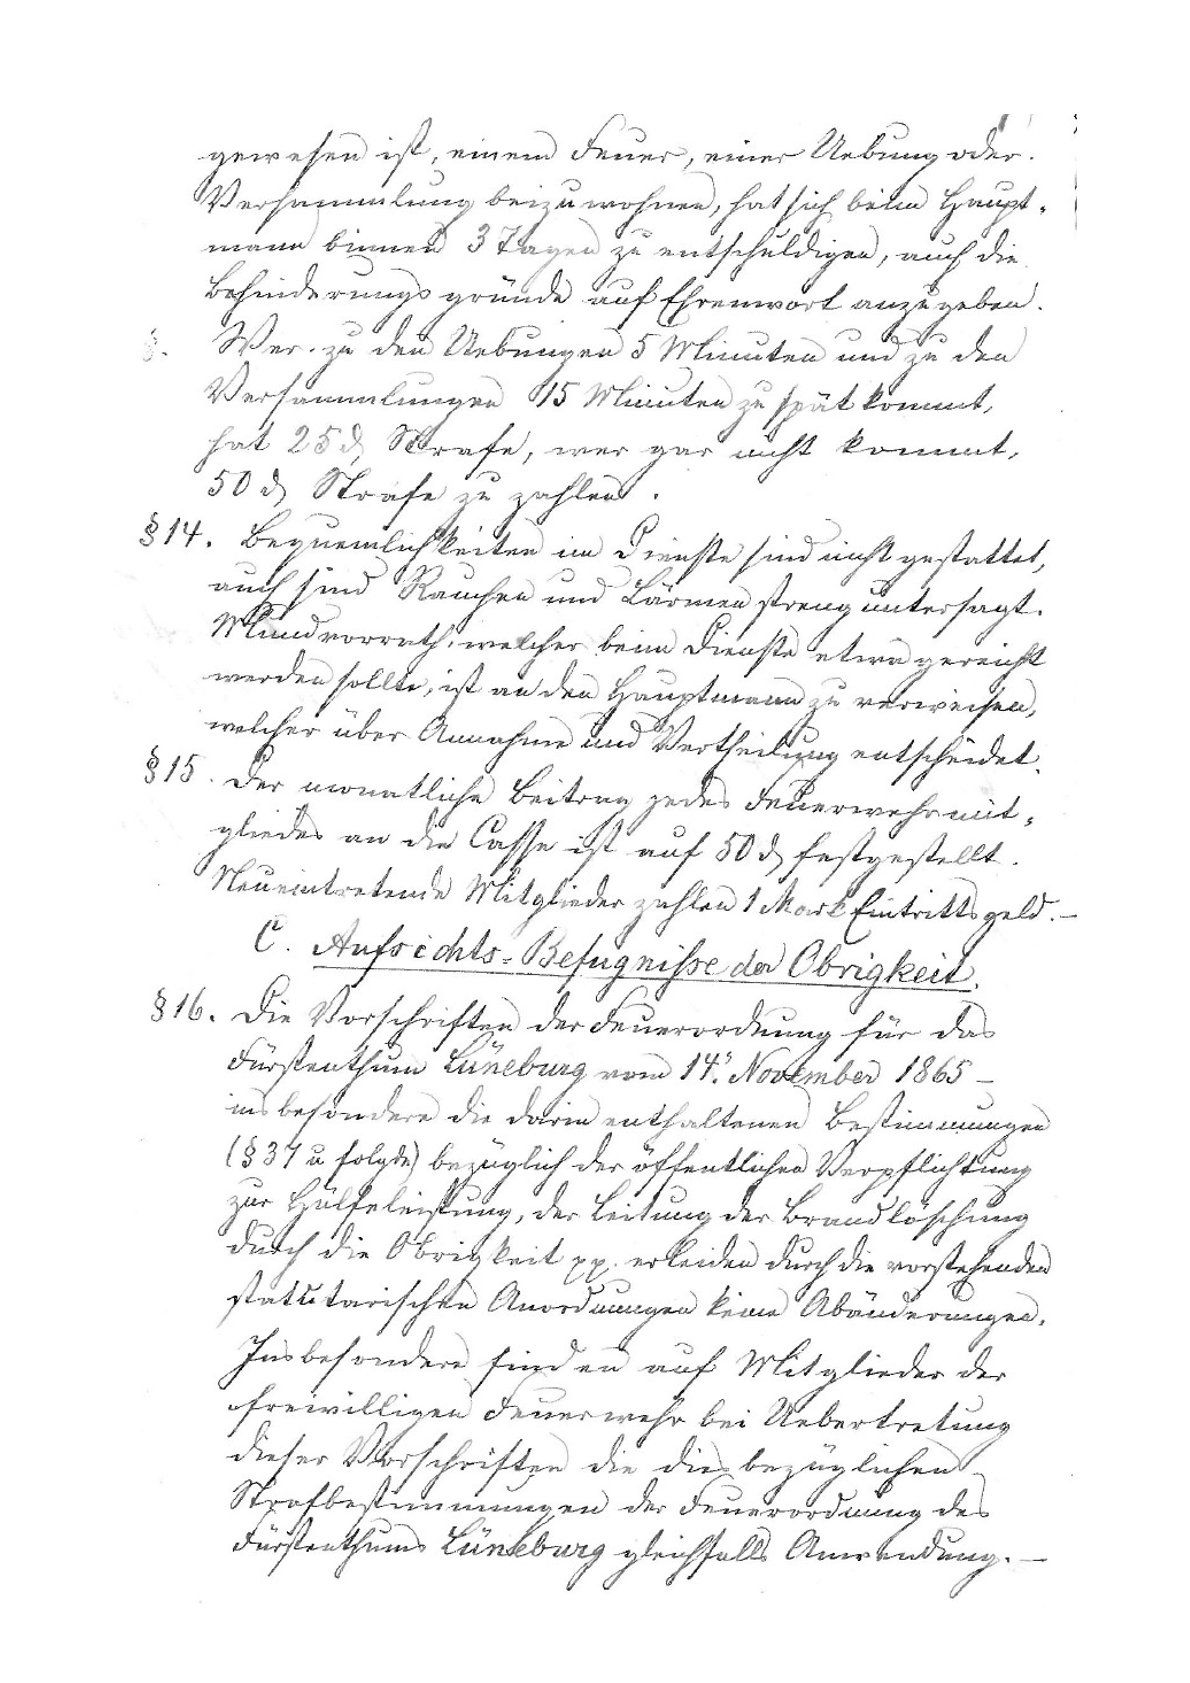 gewesen ist, einem Feuer, einer Uebung oder
Versammlung beizuwohnen, hat sich beim Haupt-
mann binnen 3 Tagen zu entschuldigen, auch die
Behinderungsgründe auf Ehrenwort anzugeben.
Wer zu den Uebungen 5 Minuten und zu den
Versammlungen 15 Minuten zu spät kommt,
hat 25 ₰ Strafe, wer gar nicht kommt,
50 ₰ Strafe zu zahlen.
§ 14. Bequemlichkeiten im Dienste sind nicht gestattet,
auch sind Rauchen und Lärmen streng untersagt.
Mundvorrath, welcher beim Dienste etwa gereicht
werden sollte, ist an den Hauptmann zu verweisen,
welcher über Annahme und Vertheilung entscheidet.
§ 15. Der monatliche Beitrag jedes Feuerwehrmit-
gliedes an die Casse ist auf 50 ₰ festgestellt.
Neueintretende Mitglieder zahlen 1 Mark Eintrittsgeld. —
C. Aufsichts-Befugnisse der Obrigkeit.
§ 16. Die Vorschriften der Feuerordnung für das
Fürstenthum Lüneburg vom 14. November 1865 –
insbesondere die darin enthaltenen Bestimmungen
(§ 37 u folgde) bezüglich der öffentlichen Verpflichtung
zur Hülfeleistung, der Leitung der Brandlöschung
durch die Obrigkeit pp. erleiden durch die vorstehenden
statutarischen Anordnungen keine Abänderungen.
Insbesondere finden auf Mitglieder der
freiwilligen Feuerwehr bei Uebertretung
dieser Vorschriften die diesbezüglichen
Strafbestimmungen der Feuerordnung des
Fürstenthums Lüneburg gleichfalls Anwendung. —